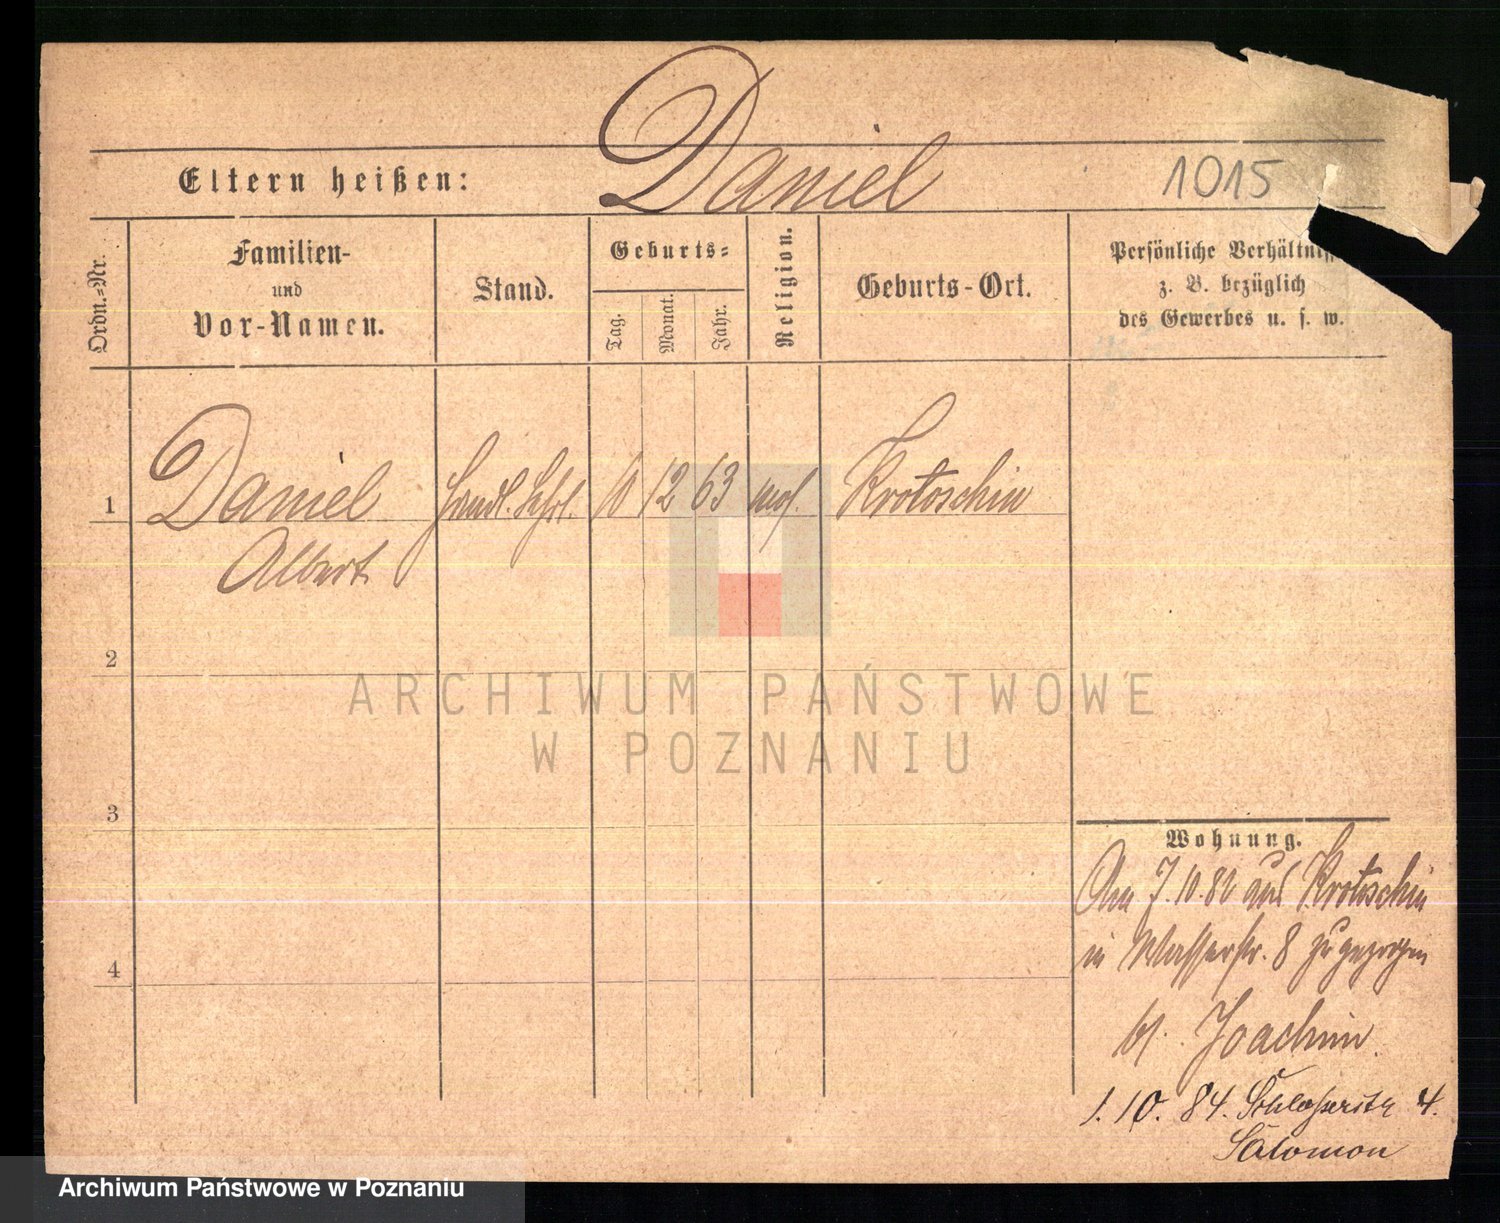 Daniel
1015
Eltern heißen:
Ordn.-Nr.
Familien-
und
Vor-Namen.
Stand.
Geburts-
Tag.
Monat.
Jahr.
Religion.
Geburts-Ort.
Persönliche Verhältniss
z. B. bezüglich
des Gewerbes u. s. w.
1 Daniel Handl. Lehrl. 10 12 63 mos. Krotoschin
Albert
2
3
4
Wohnung.
Am 7.10.82 aus Krotoschin
in Wasserstr. 8 zugezogen
bl. Joachim
1. 10. 84. Schlosserstr 4.
Salomon
ARCHIWUM PAŃSTWOWE
W POZNANIU
Archiwum Państwowe w Poznaniu